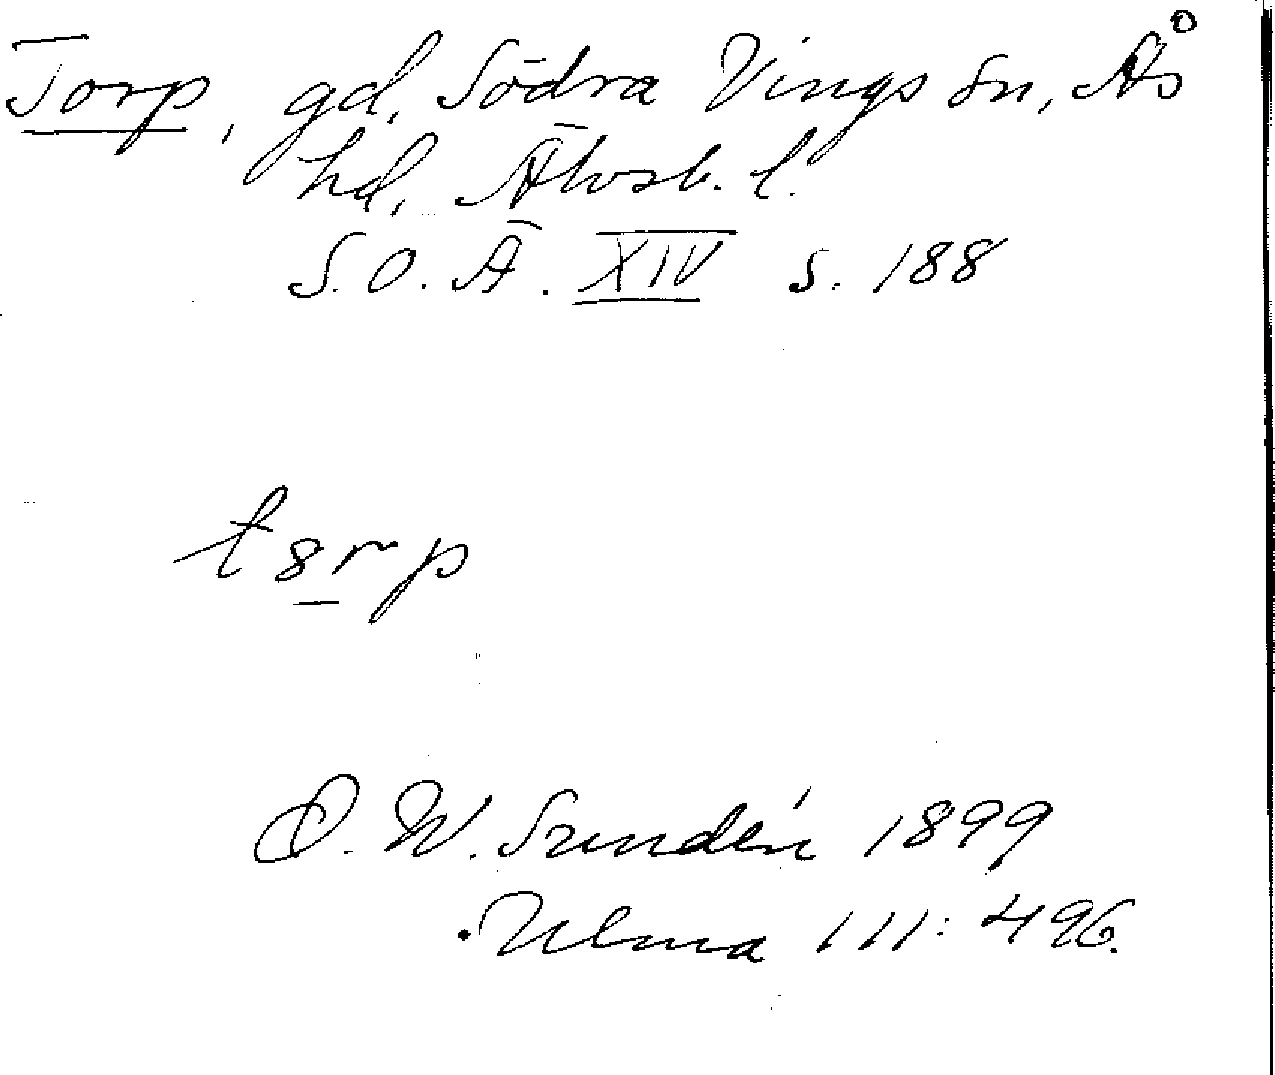 Torp, gd, Södra Vings sn, Ås
hd, Älvsb. l.
S.O.Ä. XIV s. 188
t8rp
D. W. Sundén 1899
Ulma 111: 496.